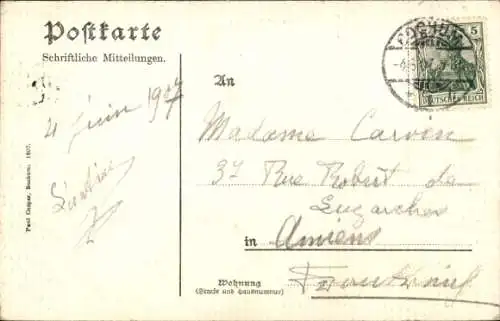 Postkarte
Schriftliche Mitteilungen.
4 Juin 1907
An
Madame Carven
37 Rue Robert de
Luzarches
in Amiens
Frankreich
Wohnung
(Straße und Hausnummer)
Paul Casper, Bochum. 1907.
BOCHUM
5
DEUTSCHES REICH